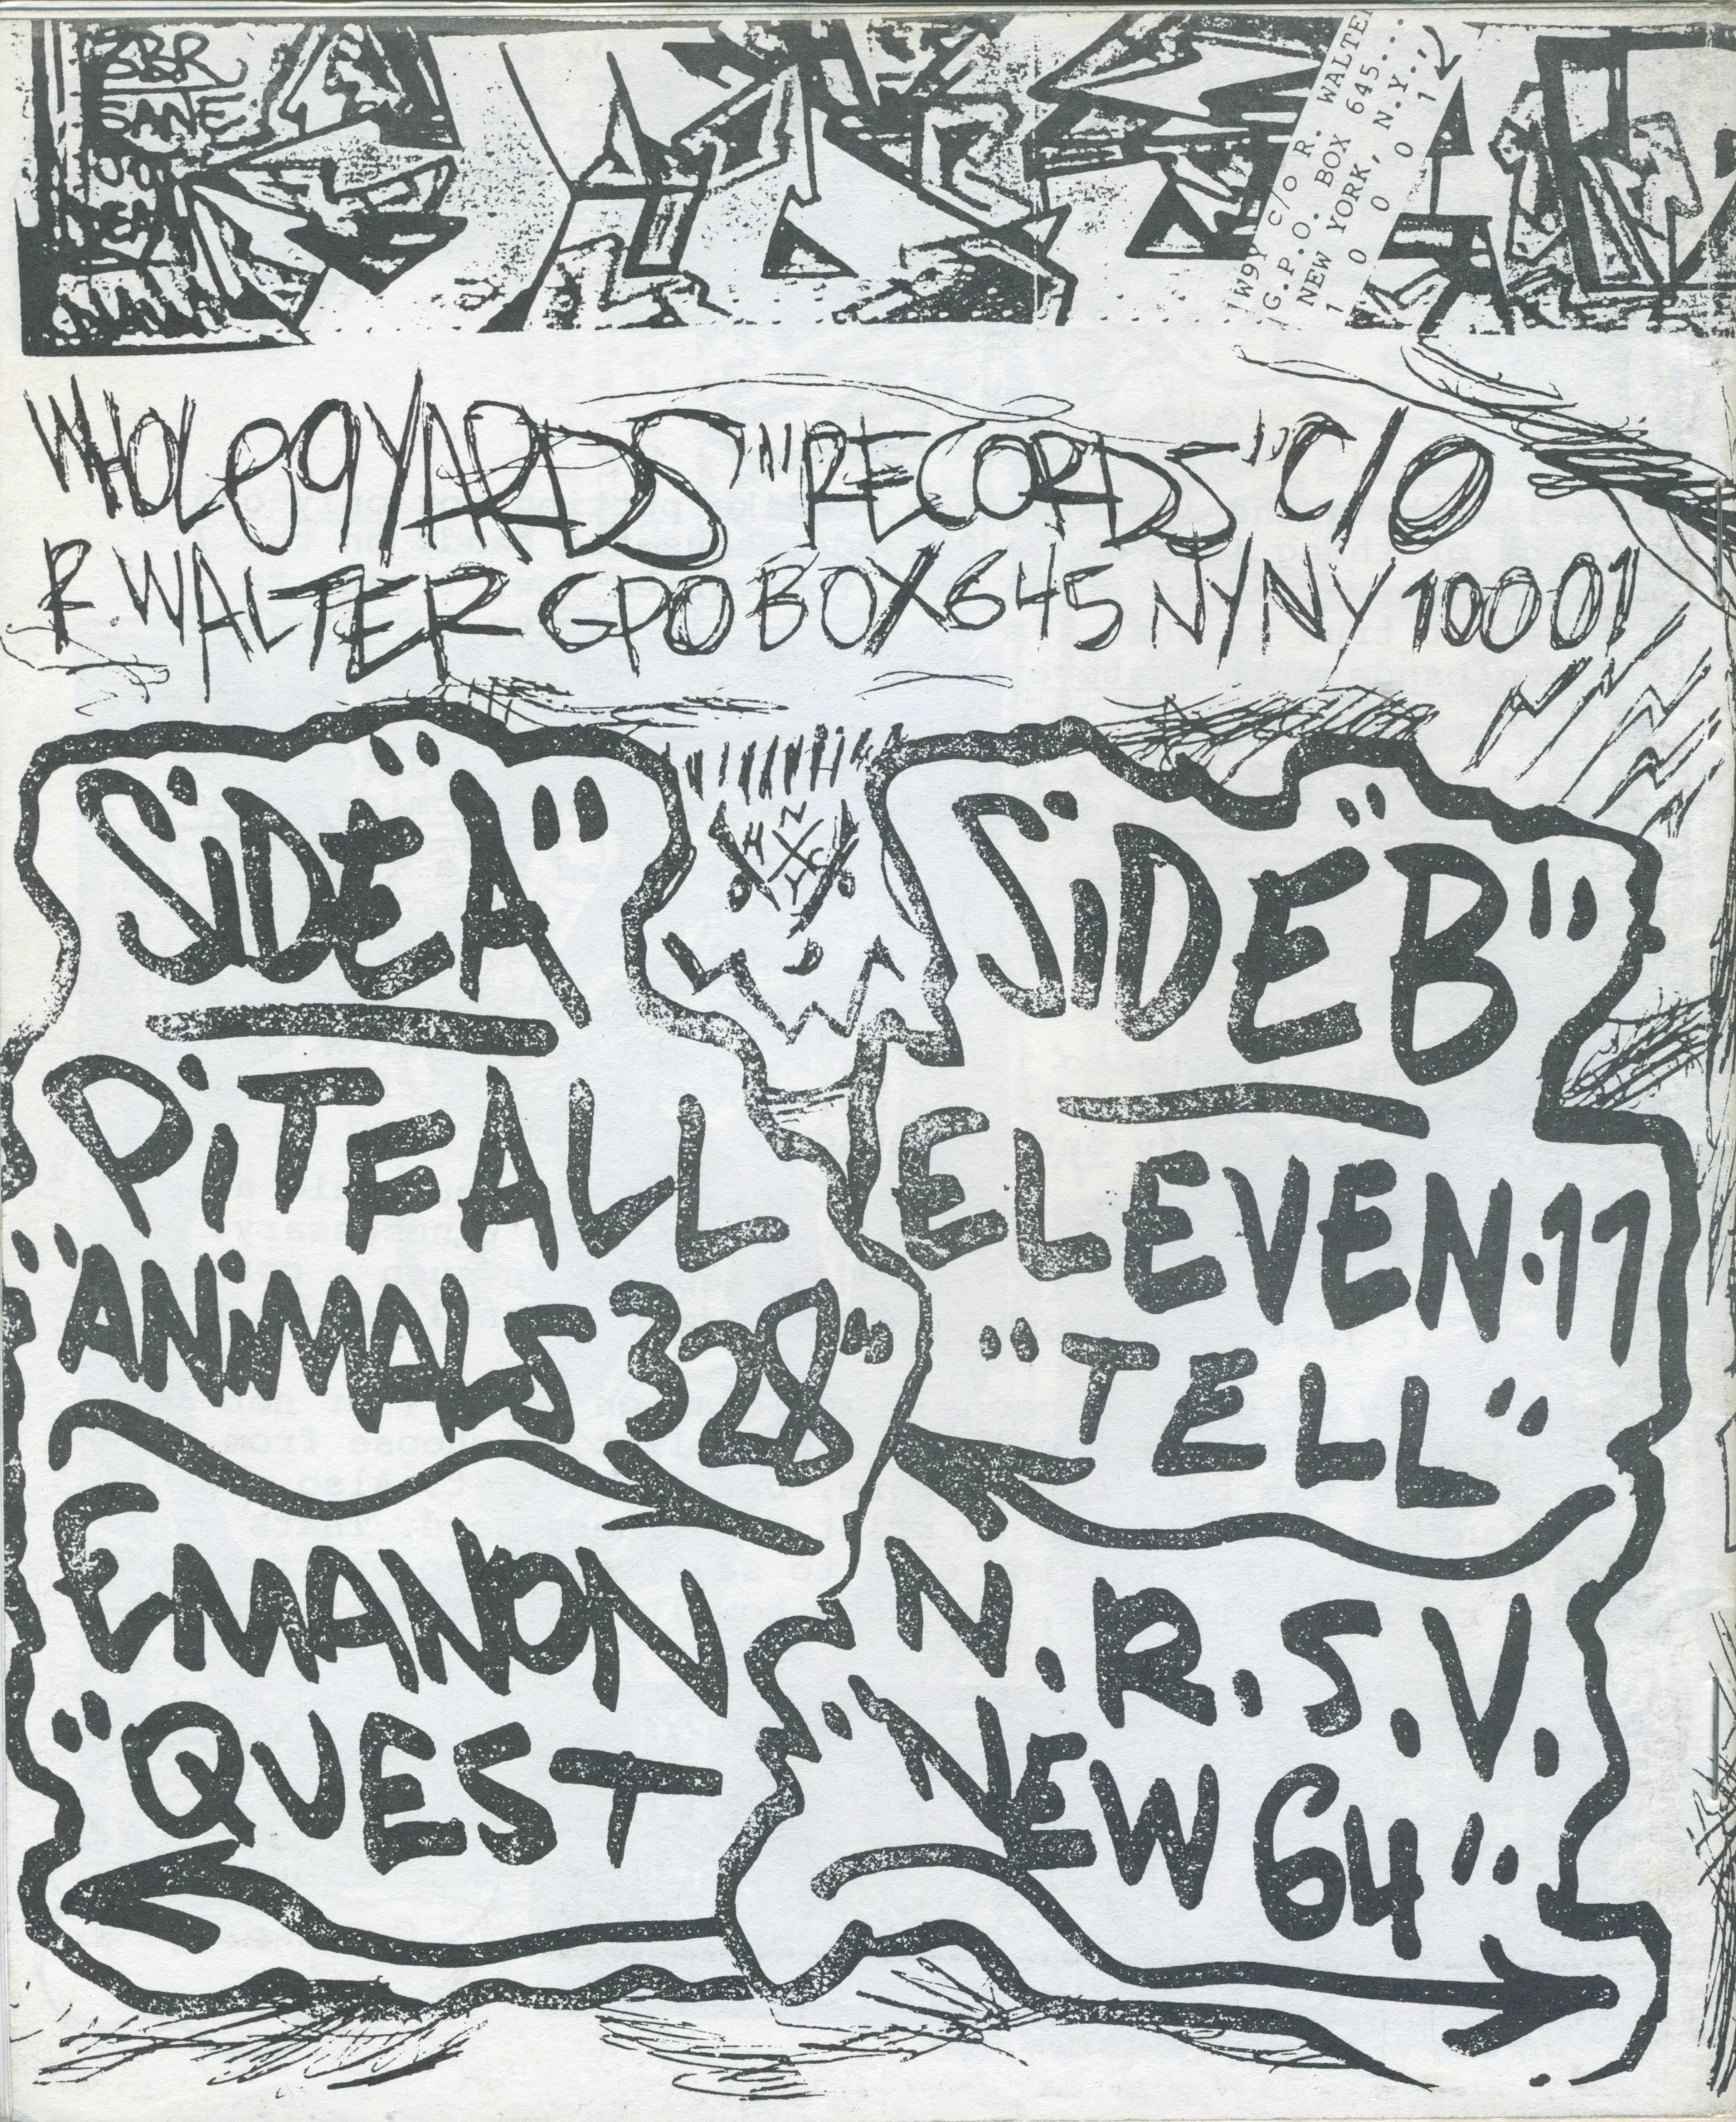 BBR
SANE
W9Y C/O R. WALTER
G.P.O. BOX 645...
NEW YORK, N.Y.,
1 0 0 0 1
WHOLE 9 YARDS "" RECORDS" C/O
R. WALTER GPO BOX 645 NY NY 10001
N
H X C
Y
"SIDE A"
PITFALL
"ANIMALS 328"
EMANON
"QUEST
"SIDE B"
ELEVEN·11
"TELL"
N.R.S.V.
"NEW 64"